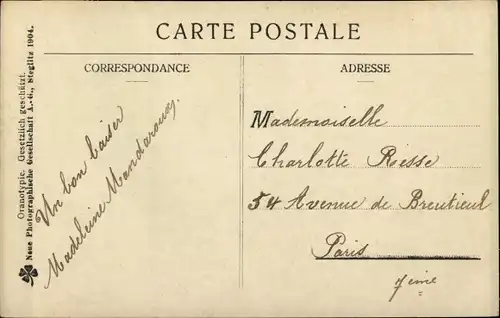 CARTE POSTALE
CORRESPONDANCE
ADRESSE
Oranotypie. Gesetzlich geschützt.
Neue Photographische Gesellschaft A.-G., Steglitz 1904.
Un bon baiser
Madeleine
Mademoiselle
Charlotte Risse
54 Avenue de Breuteuil
Paris
7ème